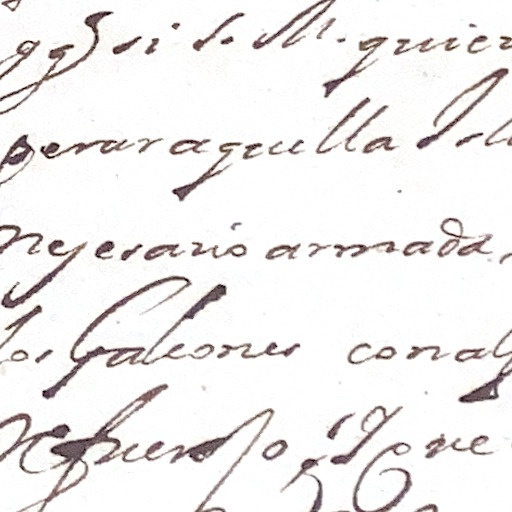 qq si S. M. quier
perar aquella Isl
neçesario armada,
los Galeones con alg
Refuerço, q ve